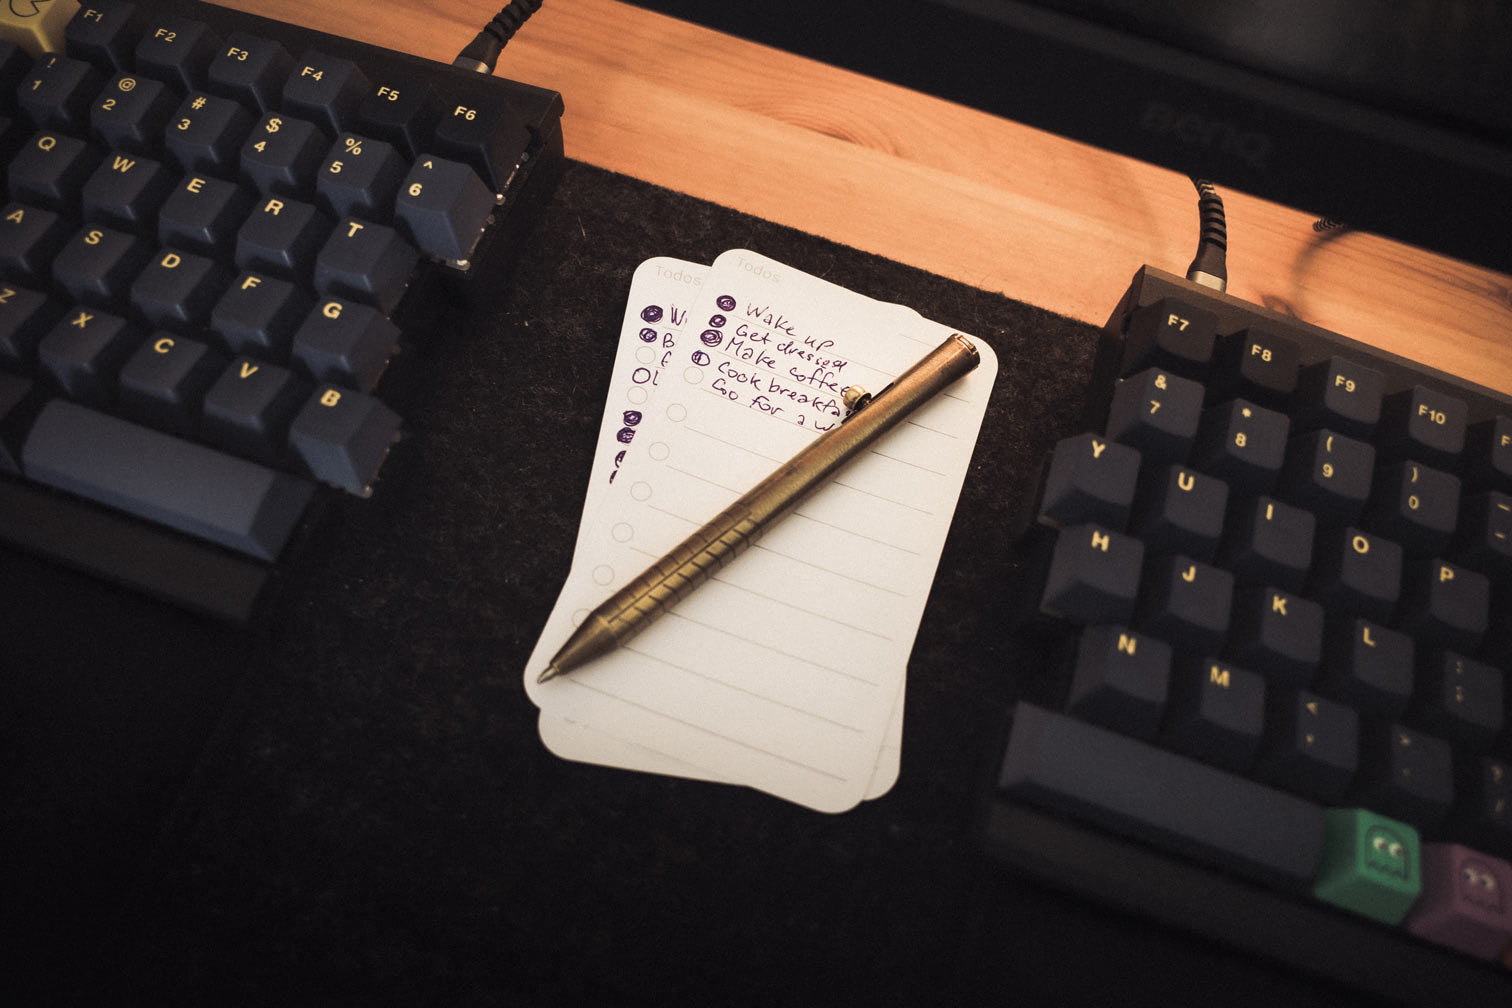 F1 F2 F3 F4 F5 F6
! @ # $ % ^
1 2 3 4 5 6
Q W E R T
A S D F G
Z X C V B
BenQ
Todos
W
B
Todos
Wake up
Get dressed
Make coffee
Cook breakfa
Go for a w
F7 F8 F9 F10 F
& * ( ) _
7 8 9 0 -
Y U I O P
H J K L : ;
N M < , > .